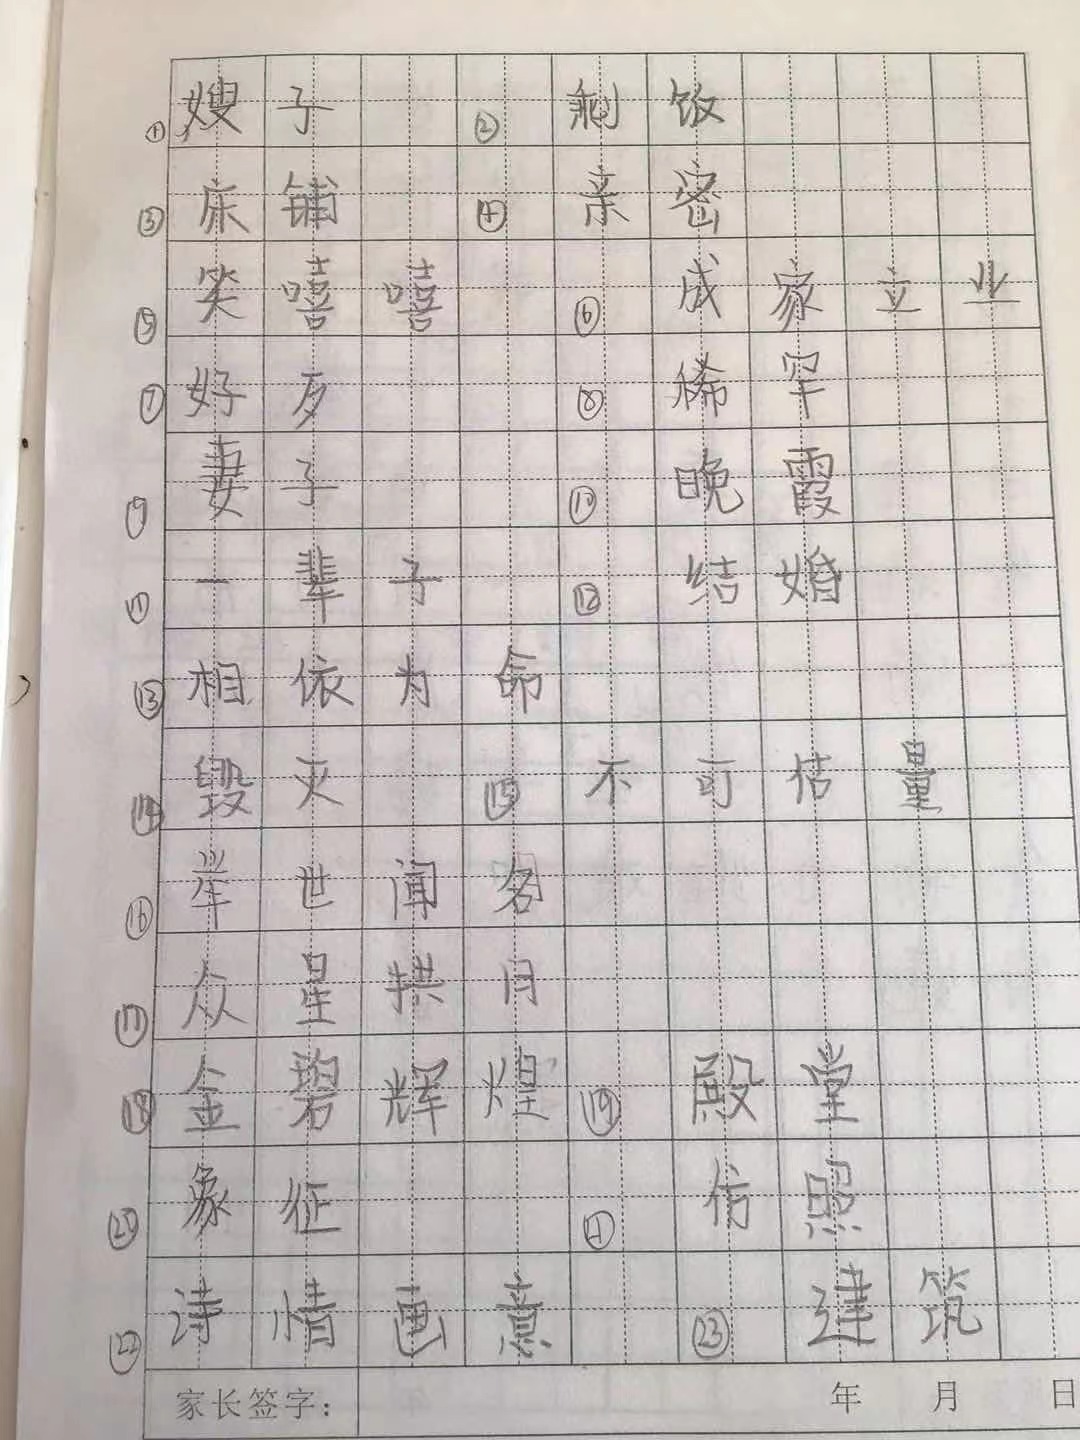 ①嫂子 ②剩饭
③床铺 ④亲密
⑤笑嘻嘻 ⑥成家立业
⑦好歹 ⑧稀罕
⑨妻子 ⑩晚霞
⑪一辈子 ⑫结婚
⑬相依为命
⑭毁灭 ⑮不可估量
⑯举世闻名
⑰众星拱月
⑱金碧辉煌 ⑲殿堂
⑳象征 ㉑仿照
㉒诗情画意 ㉓建筑
家长签字： 年 月 日